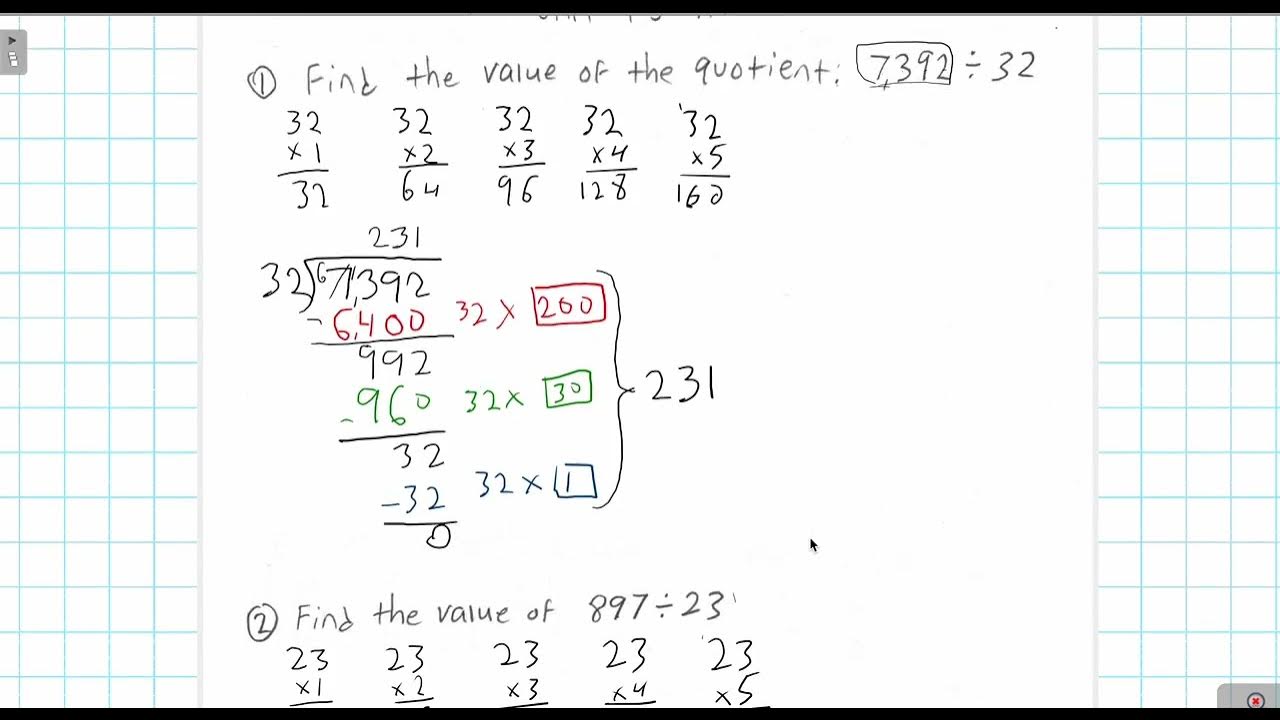 ① Find the value of the quotient: 7,392 ÷ 32
32 32 32 32 32
×1 ×2 ×3 ×4 ×5
32 64 96 128 160
231
32 7,392
-6,400 32 × 200
992
-960 32 × 30
231
32
-32 32 × 1
0
② Find the value of 897 ÷ 23
23 23 23 23 23
×1 ×2 ×3 ×4 ×5